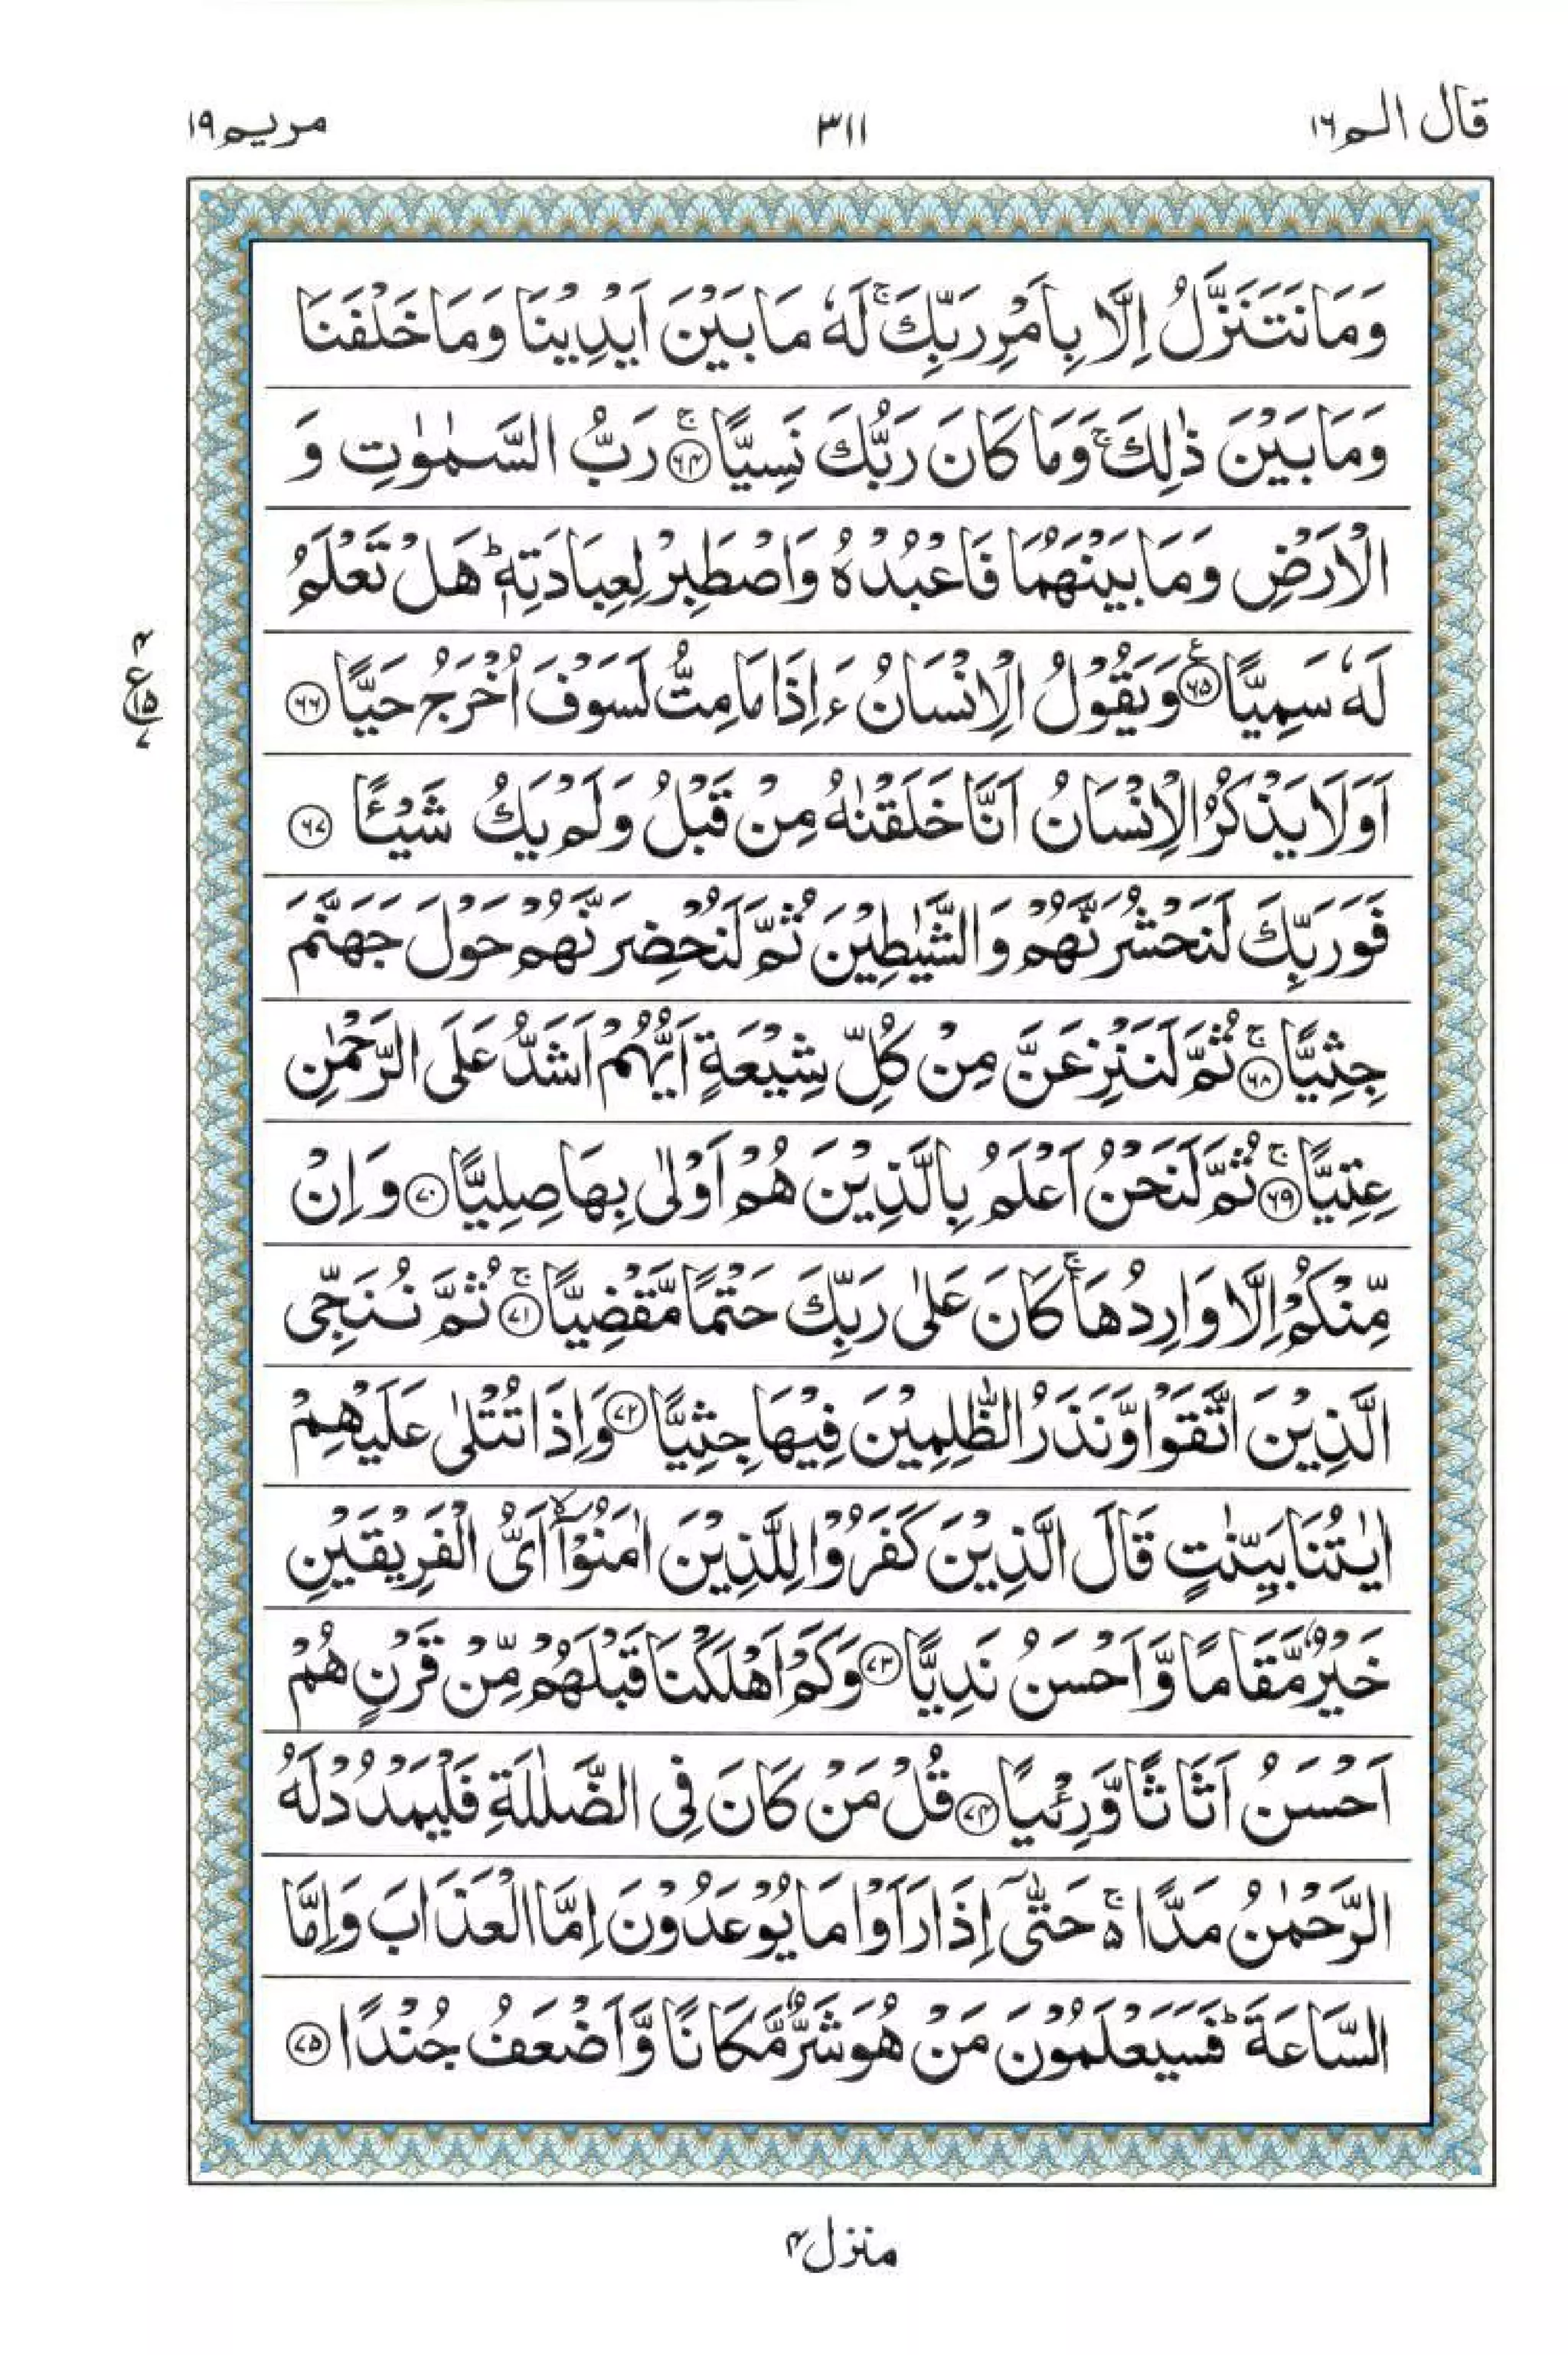 قال الم ١٦
٣١١
مریم ١٩
وَمَا نَتَنَزَّلُ اِلَّا بِاَمْرِ رَبِّكَ ۚ لَهٗ مَا بَيْنَ اَيْدِيْنَا وَمَا خَلْفَنَا
وَمَا بَيْنَ ذٰلِكَ ۚ وَمَا كَانَ رَبُّكَ نَسِيًّا ۚ ﴿۶۴﴾ رَبُّ السَّمٰوٰتِ وَ
الْاَرْضِ وَمَا بَيْنَهُمَا فَاعْبُدْهُ وَاصْطَبِرْ لِعِبَادَتِهٖ ؕ هَلْ تَعْلَمُ
لَهٗ سَمِيًّا ﴿۶۵﴾ ع وَيَقُوْلُ الْاِنْسَانُ ءَاِذَا مَا مِتُّ لَسَوْفَ اُخْرَجُ حَيًّا ﴿۶۶﴾
ع
۴
۱۵
۷
اَوَلَا يَذْكُرُ الْاِنْسَانُ اَنَّا خَلَقْنٰهُ مِنْ قَبْلُ وَلَمْ يَكُ شَيْـًٔا ﴿۶۷﴾
فَوَرَبِّكَ لَنَحْشُرَنَّهُمْ وَالشَّيٰطِيْنَ ثُمَّ لَنُحْضِرَنَّهُمْ حَوْلَ جَهَنَّمَ
جِثِيًّا ۚ ﴿۶۸﴾ ثُمَّ لَنَنْزِعَنَّ مِنْ كُلِّ شِيْعَةٍ اَيُّهُمْ اَشَدُّ عَلَى الرَّحْمٰنِ
عِتِيًّا ۚ ﴿۶۹﴾ ثُمَّ لَنَحْنُ اَعْلَمُ بِالَّذِيْنَ هُمْ اَوْلٰى بِهَا صِلِيًّا ﴿۷۰﴾ وَاِنْ
مِّنْكُمْ اِلَّا وَارِدُهَا ۚ كَانَ عَلٰى رَبِّكَ حَتْمًا مَّقْضِيًّا ۚ ﴿۷۱﴾ ثُمَّ نُنَجِّى
الَّذِيْنَ اتَّقَوْا وَّنَذَرُ الظّٰلِمِيْنَ فِيْهَا جِثِيًّا ﴿۷۲﴾ وَاِذَا تُتْلٰى عَلَيْهِمْ
اٰيٰتُنَا بَيِّنٰتٍ قَالَ الَّذِيْنَ كَفَرُوْا لِلَّذِيْنَ اٰمَنُوْٓا ۙ اَىُّ الْفَرِيْقَيْنِ
خَيْرٌ مَّقَامًا وَّاَحْسَنُ نَدِيًّا ﴿۷۳﴾ وَكَمْ اَهْلَكْنَا قَبْلَهُمْ مِّنْ قَرْنٍ هُمْ
اَحْسَنُ اَثَاثًا وَّرِءْيًا ﴿۷۴﴾ قُلْ مَنْ كَانَ فِى الضَّلٰلَةِ فَلْيَمْدُدْ لَهُ
الرَّحْمٰنُ مَدًّا ۚ۵ حَتّٰٓى اِذَا رَاَوْا مَا يُوْعَدُوْنَ اِمَّا الْعَذَابَ وَاِمَّا
السَّاعَةَ ؕ فَسَيَعْلَمُوْنَ مَنْ هُوَ شَرٌّ مَّكَانًا وَّاَضْعَفُ جُنْدًا ﴿۷۵﴾
منزل ۴